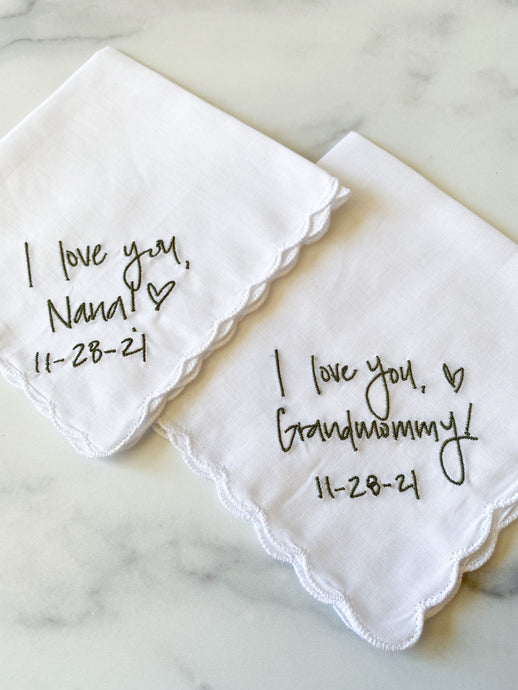 I love you,
Nana! ♡
11-28-21
I love you, ♡
Grandmommy!
11-28-21